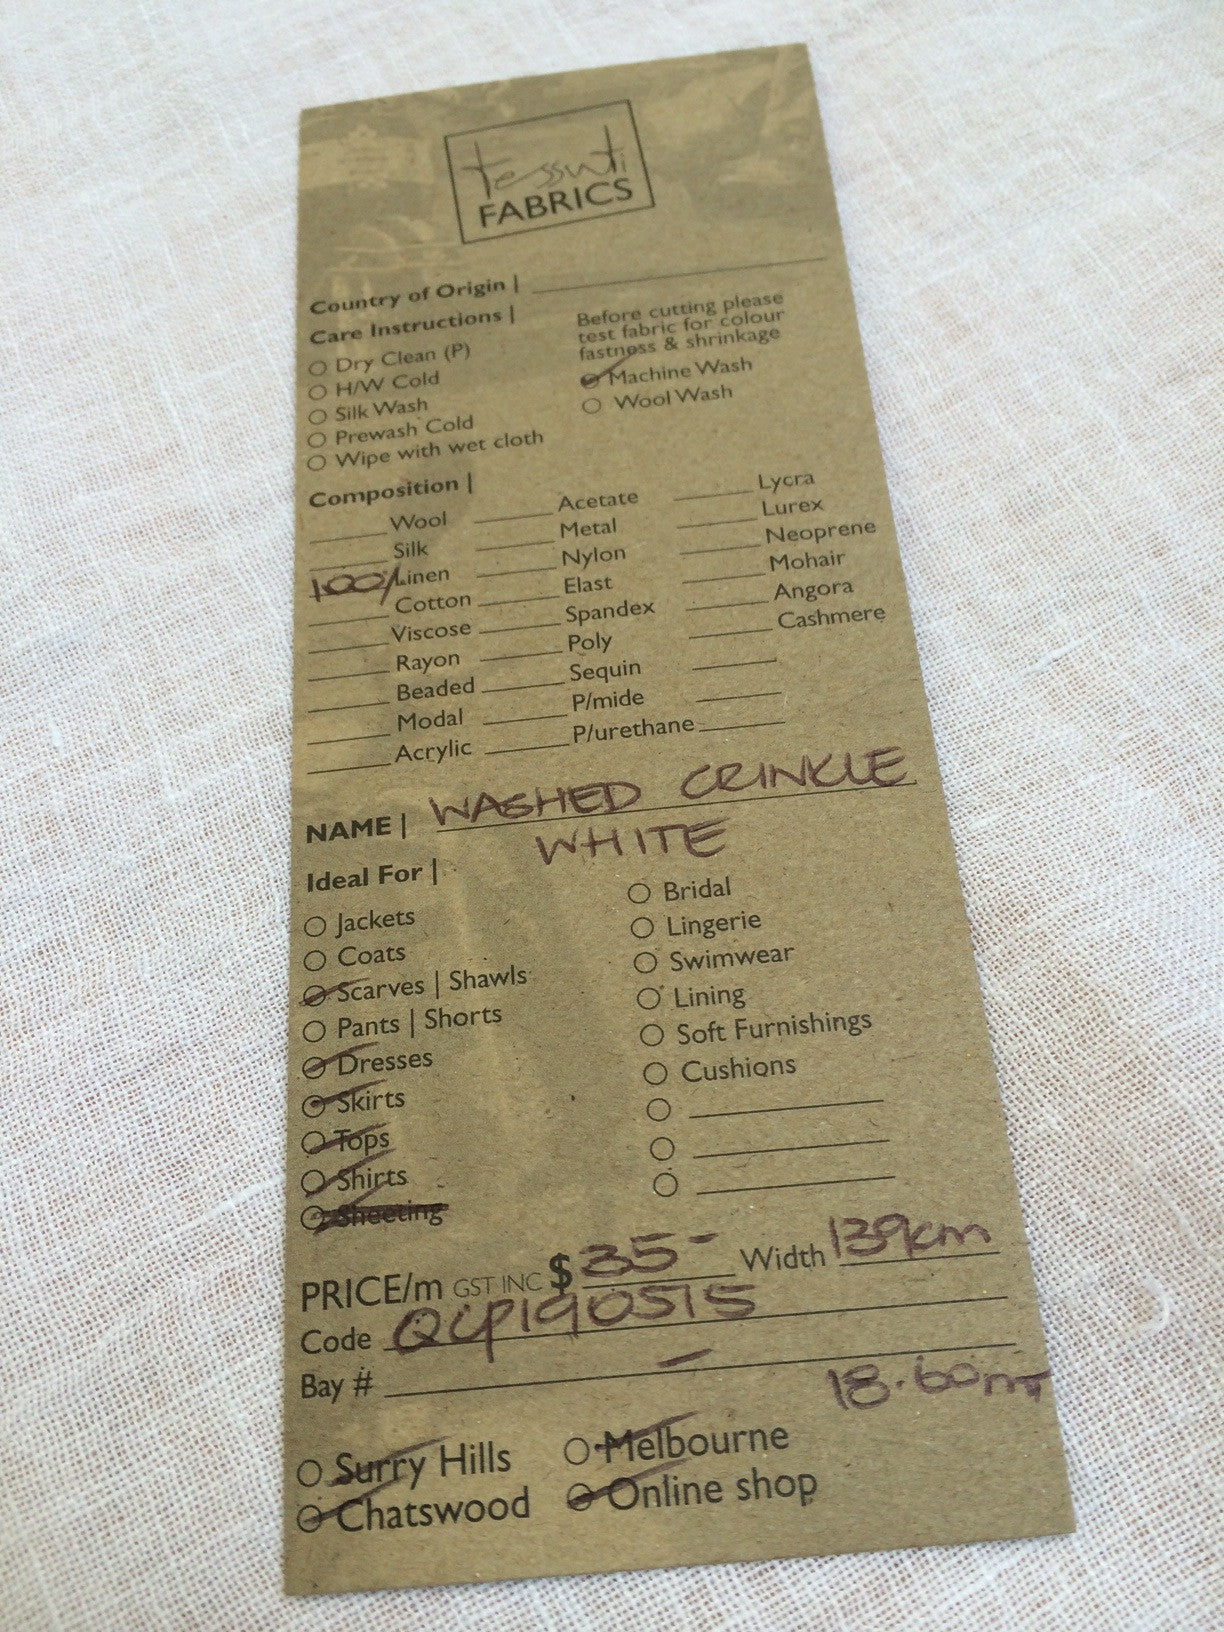 tessuti
FABRICS
Country of Origin |
Care Instructions |
Before cutting please
test fabric for colour
fastness & shrinkage
Dry Clean (P)
H/W Cold
Silk Wash
Prewash Cold
Wipe with wet cloth
Machine Wash
Wool Wash
Composition |
Wool
Silk
100% Linen
Cotton
Viscose
Rayon
Beaded
Modal
Acrylic
Acetate
Metal
Nylon
Elast
Spandex
Poly
Sequin
P/mide
P/urethane
Lycra
Lurex
Neoprene
Mohair
Angora
Cashmere
NAME | WASHED CRINKLE
WHITE
Ideal For |
Jackets
Coats
Scarves | Shawls
Pants | Shorts
Dresses
Skirts
Tops
Shirts
Sheeting
Bridal
Lingerie
Swimwear
Lining
Soft Furnishings
Cushions
PRICE/m GST INC $35- Width 139cm
Code QLP190515
Bay # -
18.60m
Surry Hills
Chatswood
Melbourne
Online shop